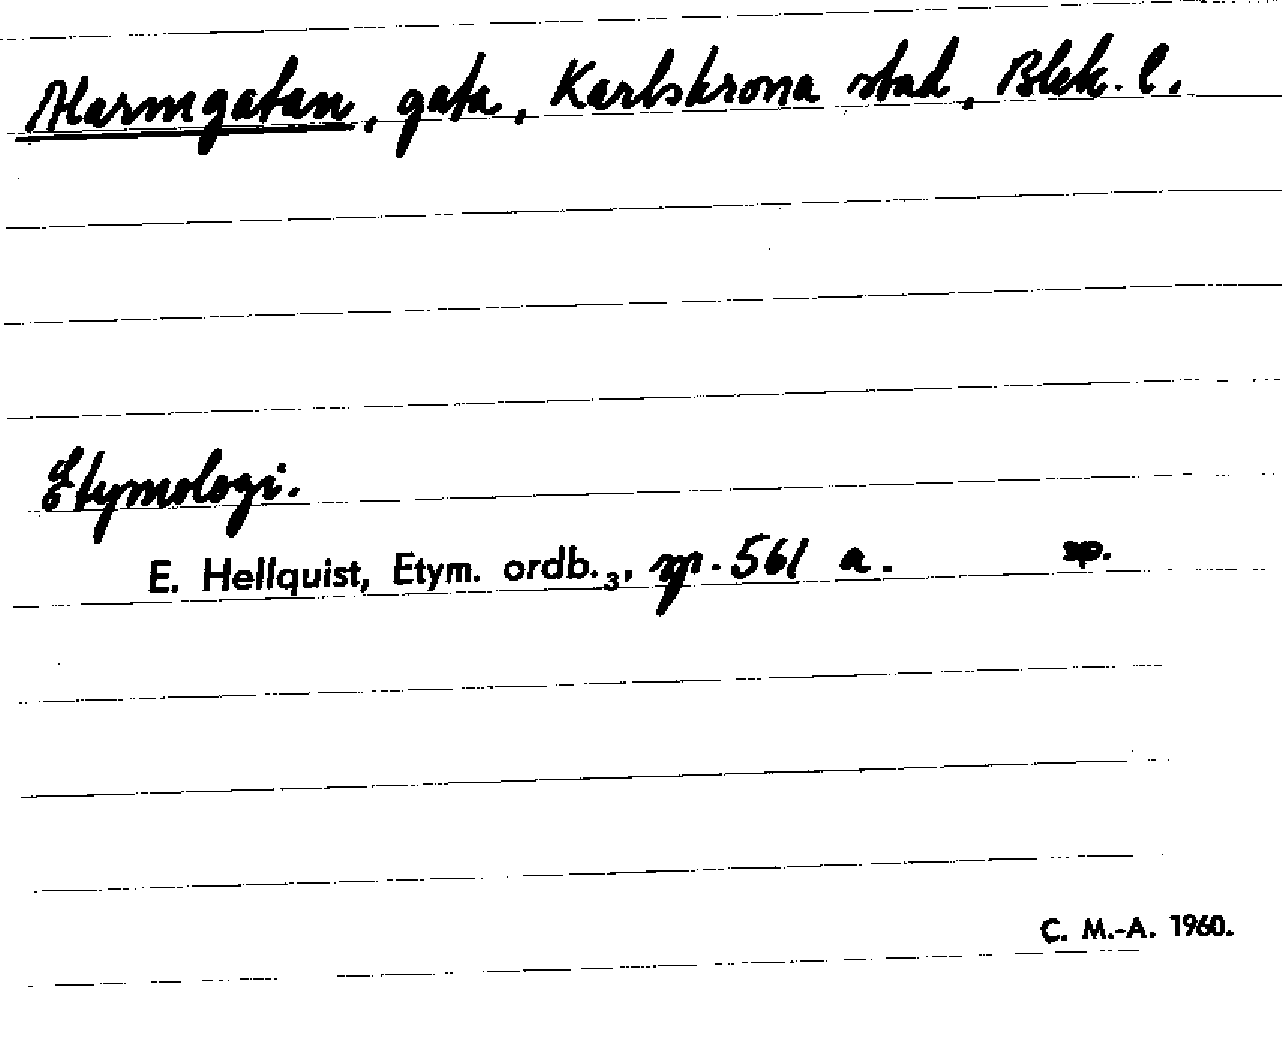 Alarmgatan, gata, Karlskrona stad, Blek. l.
Etymologi.
E. Hellquist, Etym. ordb.₃, sp. 561 a. sp.
C. M.-A. 1960.